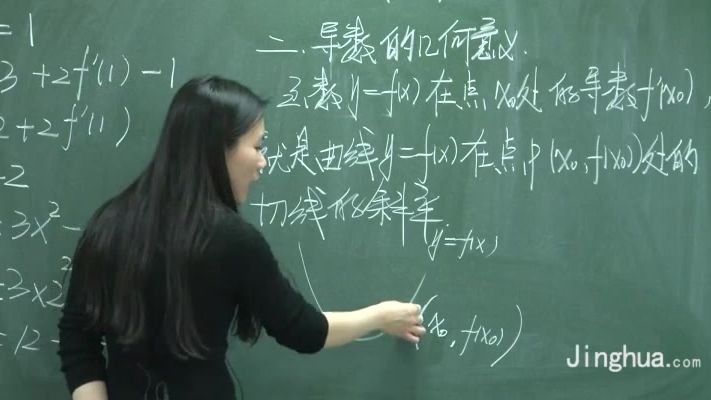 =1
3 + 2f'(1) - 1
2 + 2f'(1)
-2
=3x²-
=3x2²
=12-
二.导数的几何意义.
函数y=f(x)在点x₀处的导数f'(x₀),
就是曲线y=f(x)在点P(x₀,f(x₀))处的
切线的斜率
y=f(x)
(x₀,f(x₀))
Jinghua.com